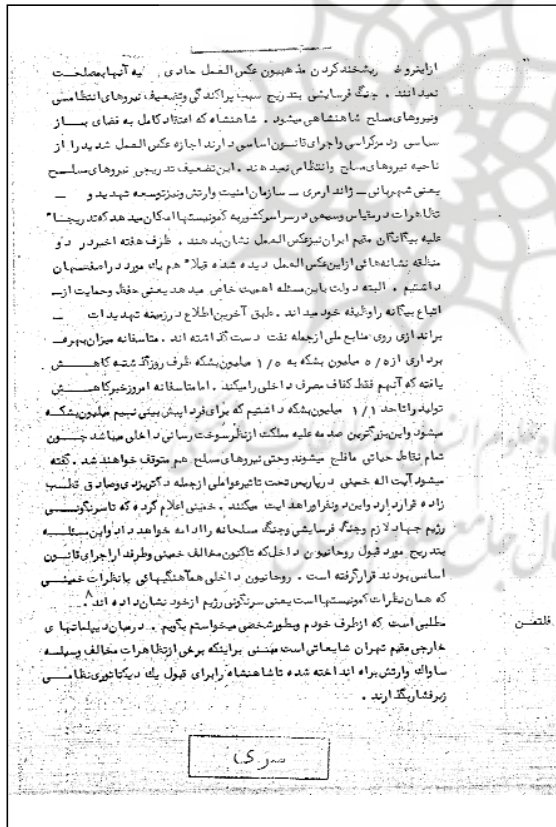 از اینرو ریشخند کردن مذهبیون عکس العمل حادی علیه آنها بمصلحت
نمیدانند . جنگ فرسایشی بتدریج سبب پراکندگی وتضعیف نیروهای انتظامی
ونیروهای مسلح شاهنشاهی میشود . شاهنشاه که اعتقاد کامل به فضای بــاز
سیاسی رد مزکراسی واجرای قانون اساسی دارند اجازه عکس العمل شدید را از
ناحیه نیروهای مسلح وانتظامی نمیدهند . این تضعیف تدریجی نیروهای مسلــح
یعنی شهربانی ــ ژاندارمری ــ سازمان امنیت وارتش ونیز توسعه تهدید و ــ
تظاهرات در مقیاس وسیعی در سراسر کشور به کمونیستها امکان میدهد که تدریجا"
علیه بیگانگان مقیم ایران نیز عکس العمل نشان بدهند . ظرف هفته اخیر در دو
منطقه نشانه هائی از این عکس العمل دیده شده قبلا" هم یک مورد در اصفهان
داشتیم . البته دولت باین مسئله اهمیت خاص میدهد یعنی حفظ وحمایت از ــ
اتباع بیگانه را وظیفه خود میداند . طبق آخرین اطلاع در زمینه تهدیدات ــ
براندازی روی منابع ملی از جمله نفت دست گذاشته اند . متاسفانه میزان بهره ــ
برداری از ۵/۵ میلیون بشکه به ۱/۵ میلیون بشکه ظرف روز گذشته کاهــش
یافته که آنهم فقط کفاف مصرف داخلی را میکند . اما متاسفانه امروز خبر کاهــش
تولید را تا حد ۱/۱ میلیون بشکه داشتیم که برای فردا پیش بینی نیم میلیون بشکه
میشود واین بزرگترین صدمه علیه مملکت از نظر سوخت رسانی داخلی میباشد چــون
تمام نقاط حیاتی ما فلج میشوند وحتی نیروهای مسلح هم متوقف خواهند شد . گفته
میشود آیت اله خمینی در پاریس تحت تاثیر عواملی از جمله دکتر یزدی وصادق قطب
زاده قرار دارد واین دو نفر اورا هدایت میکنند . خمینی اعلام کرده که تا سرنگونــی
رژیم جهاد لازم وجنگ فرسایشی وجنگ مسلحانه را ادامه خواهد داد واین مسئلــه
بتدریج مورد قبول روحانیون داخل که تاکنون مخالف خمینی وطرفدار اجرای قانــون
اساسی بودند قرار گرفته است . روحانیون داخلی هماهنگیهائی با نظرات خمینــی
که همان نظرات کمونیستها است یعنی سرنگونی رژیم از خود نشان داده اند ۸
فلتمن مطلبی است که از طرف خودم وبطور شخصی میخواستم بگویم . در میان دیپلماتهای
خارجی مقیم تهران شایعاتی است مبنــی بر اینکه برخی از تظاهرات مخالف وسیله
ساواک وارتش براه انداخته شده تا شاهنشاه را برای قبول یک دیکتاتوری نظامــی
زیر فشار بگذارند .
سری